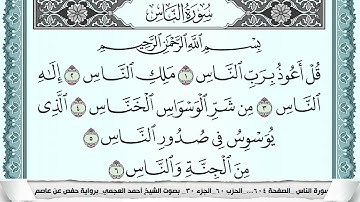 سُورَةُ النَّاسِ
بِسْمِ اللَّهِ الرَّحْمَٰنِ الرَّحِيمِ
قُلْ أَعُوذُ بِرَبِّ النَّاسِ ١ مَلِكِ النَّاسِ ٢ إِلَٰهِ
النَّاسِ ٣ مِن شَرِّ الْوَسْوَاسِ الْخَنَّاسِ ٤ الَّذِي
يُوَسْوِسُ فِي صُدُورِ النَّاسِ ٥
مِنَ الْجِنَّةِ وَالنَّاسِ ٦
سورة الناس _الصفحة ٦٠٤... الحزب ٦٠_ الجزء ٣٠_ بصوت الشيخ أحمد العجمي_ برواية حفص عن عاصم